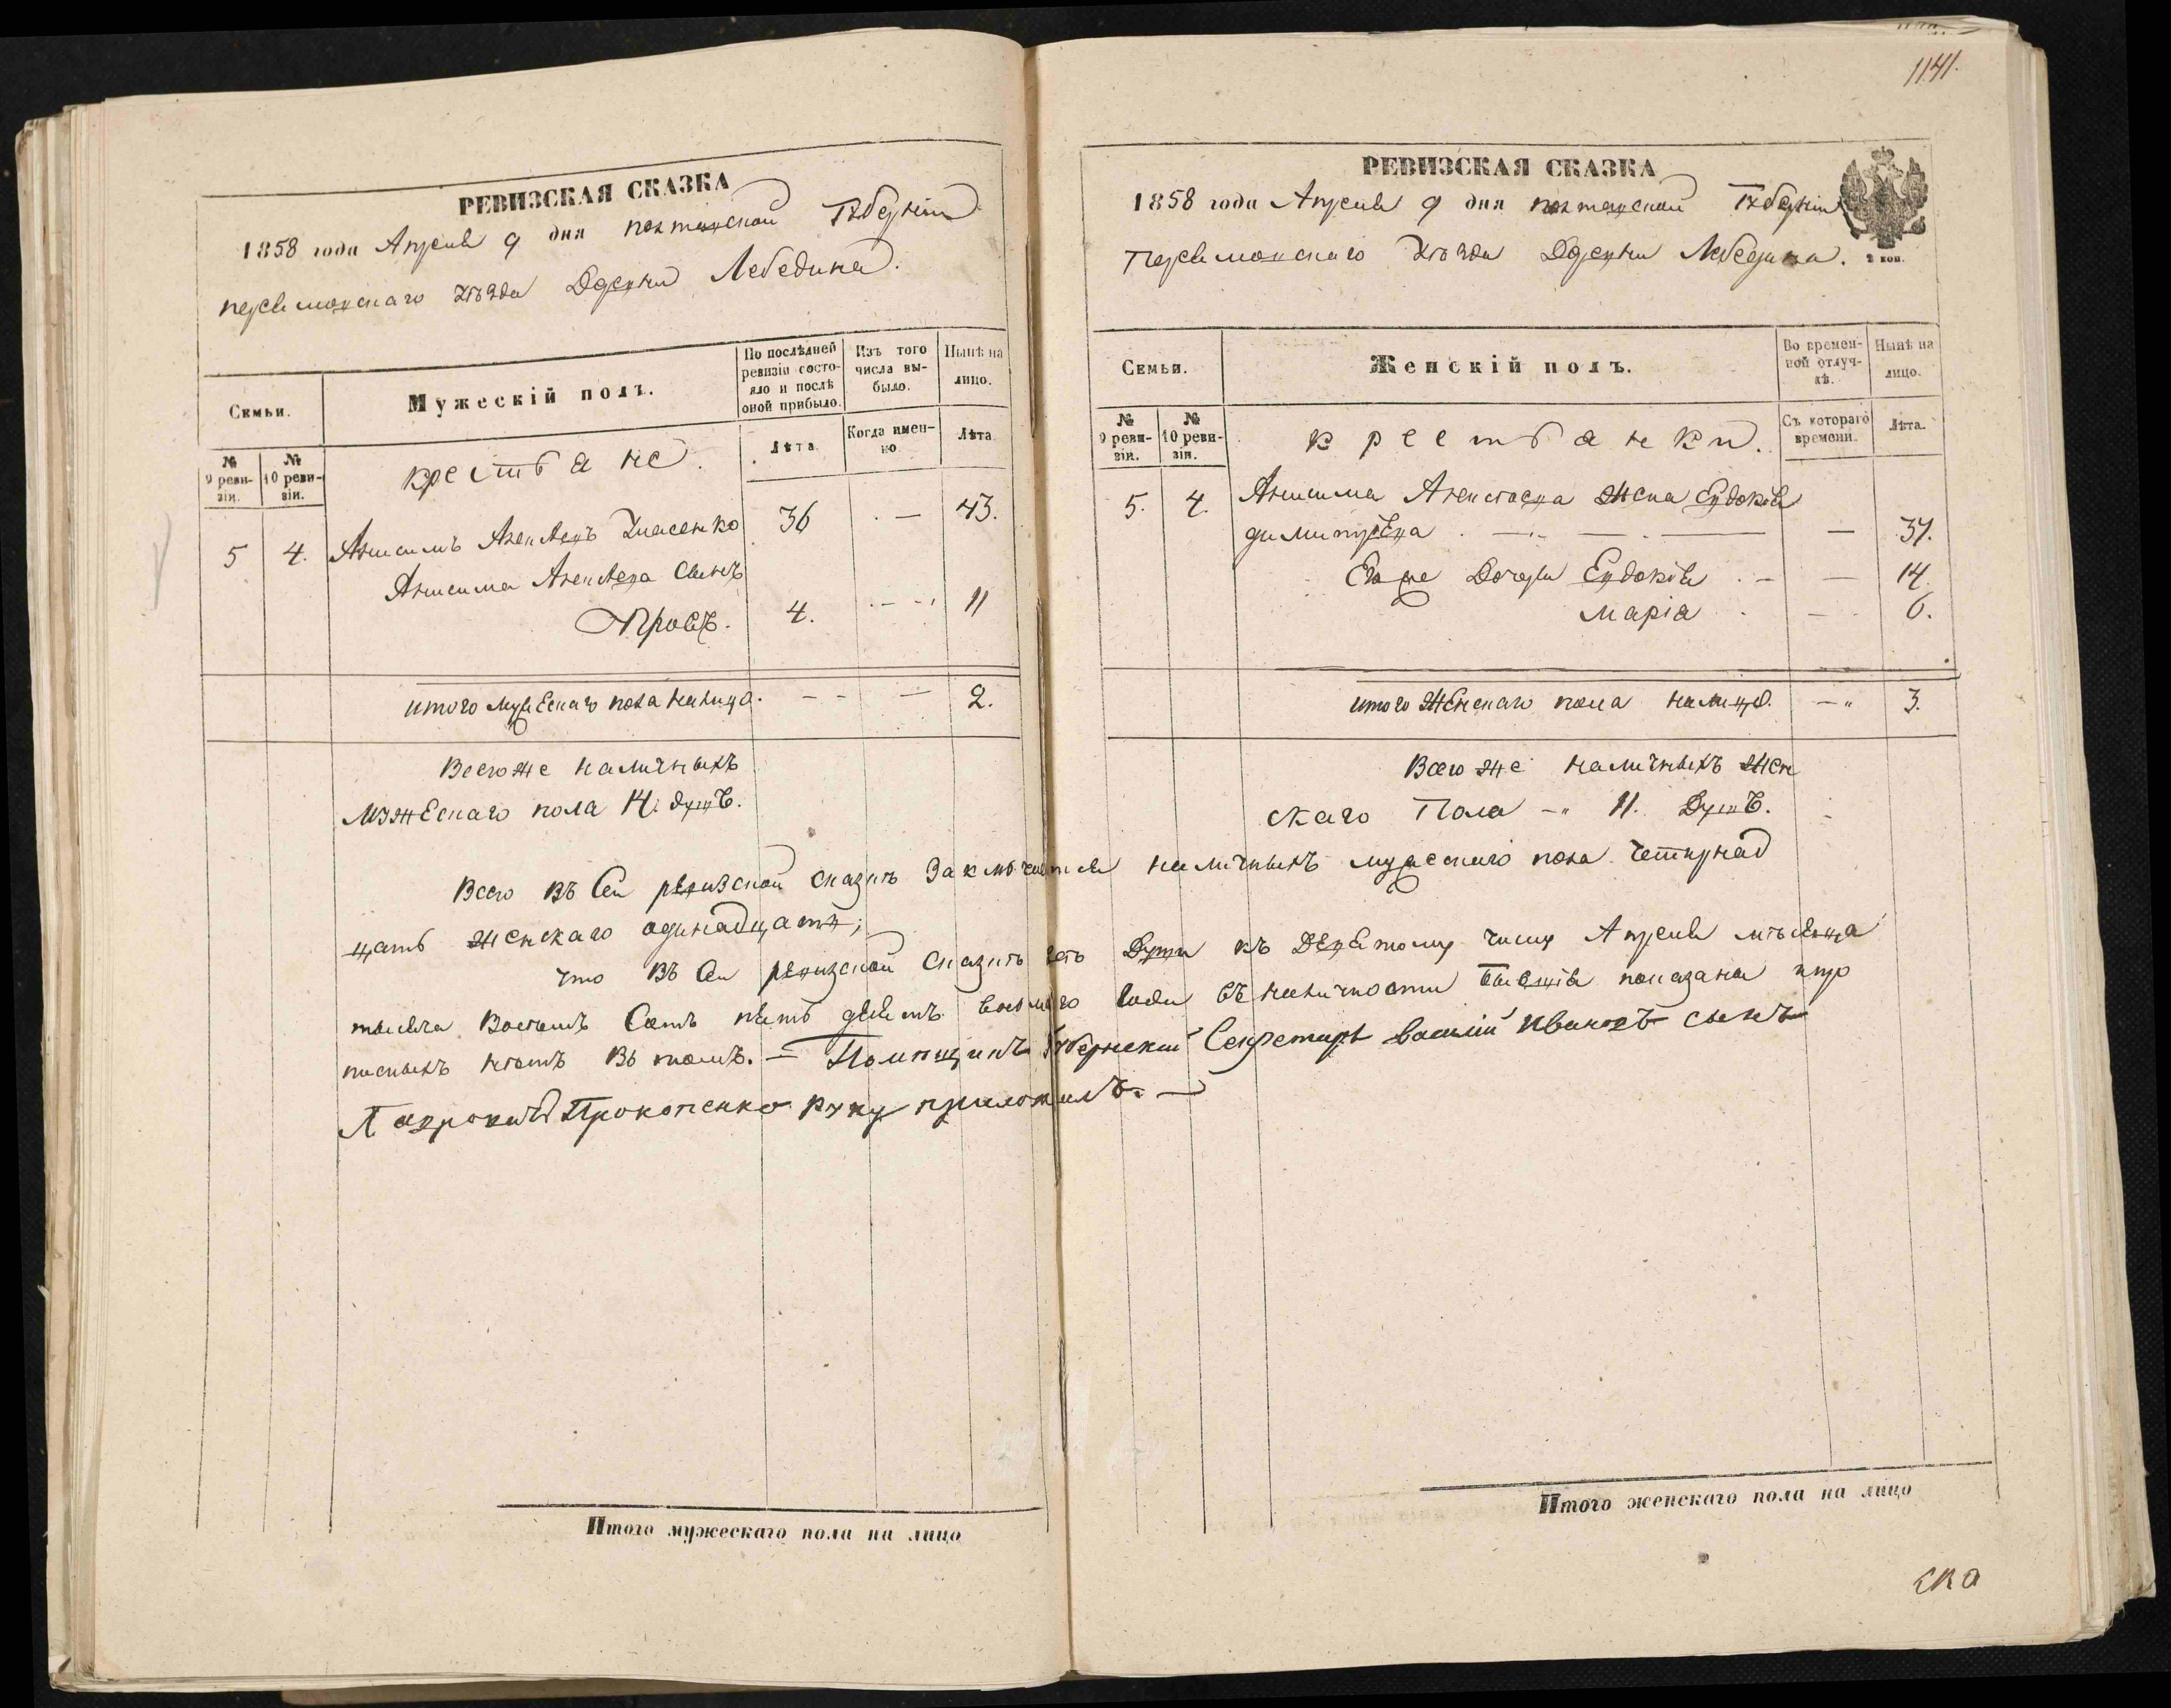 РЕВИЗСКАЯ СКАЗКА
1858 года Апреля 9 дня полтавской Губерніи
переяславскаго уѣзда Деревни Лебедина.
Семьи.
Мужескій полъ.
По послѣдней ревизіи состояло и послѣ оной прибыло.
Изъ того числа выбыло.
Нынѣ на лицо.
№ 9 ревизіи.
№ 10 ревизіи.
крестьяне.
Лѣта
Когда именно
Лѣта.
5 4. Анисимъ Алексѣевъ 36 — 43.
Анисима Алексѣева Сынъ
4. — 11
итого мужескаго пола налицо. — — 2.
Всегоже наличныхъ
мужескаго пола 14. душъ.
РЕВИЗСКАЯ СКАЗКА
1858 года Апреля 9 дня полтавской Губерніи
уѣзда Деревни Лебедина.
2 коп.
1141.
Семьи.
Женскій полъ.
Во временной отлучкѣ.
Нынѣ на лицо.
№ 9 ревизіи.
№ 10 ревизіи.
крестьянки.
Съ котораго времени.
Лѣта.
5. 4. Анисима Алексѣева жена Евдокія
димитріева — 37.
Его же Дочери Евдокія — 14.
Марія — 6.
итого женскаго пола налицо. — 3.
Всего же наличныхъ жен
скаго Пола — 11. Душъ.
Всего въ Сей ревизской сказкѣ Заключается наличныхъ мужескаго пола четырнад
цать женскаго одинадцать;
что въ Сей ревизской Сказкѣ всѣ Души къ Девятому числу Апреля мѣсяца
тысяча Восемь Сотъ пять десятъ восьмаго года въ наличности бывшія показаны и про
писныхъ нѣтъ въ томъ. — Помѣщикъ Губернскій Секретарь Василій Ивановъ сынъ
Прокопенко руку приложилъ. —
Итого мужескаго пола на лицо
Итого женскаго пола на лицо
ска